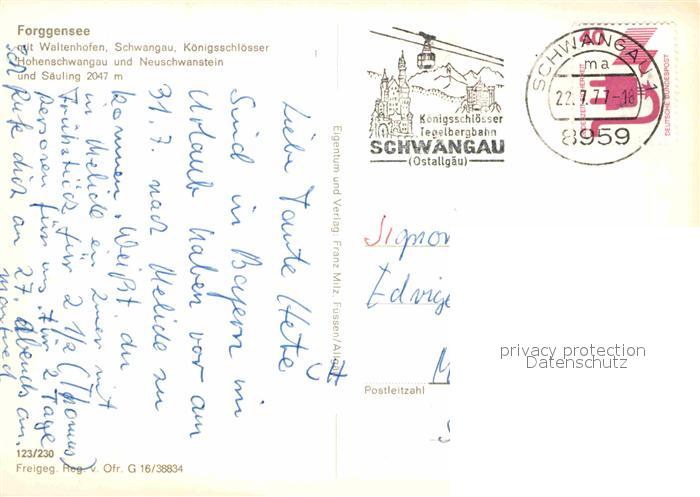 Forggensee
mit Waltenhofen, Schwangau, Königsschlösser
Hohenschwangau und Neuschwanstein
und Säuling 2047 m
Liebe Tante Hete
Sind in Bayern im
Urlaub haben vor am
31.7. nach Melide zu
kommen. Weißt du
in Melide ein Zimmer mit
Frühstück für 2 1/2 (Thomas)
Personen für uns. Für 2 Tage
Ich rufe dich an 27. abends an.
Manfred
123/230
Freigeg. Reg. v. Ofr. G 16/38834
Eigentum und Verlag: Franz Milz, Füssen/Allgäu
Königsschlösser
Tegelbergbahn
SCHWANGAU
(Ostallgäu)
SCHWANGAU 1
ma
22.7.77-18
8959
40
DEUTSCHE BUNDESPOST
Signor
Edvige
M
Postleitzahl
privacy protection
Datenschutz